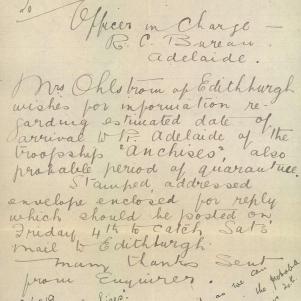 To
Officer in Charge —
R. C. Bureau.
Adelaide.
Mrs Ohlstrom of Edithburgh
wishes for information re-
garding estimated date of
arrival to Pt. Adelaide of the
troopship "Anchises", also
probable period of quarantine.
Stamped, addressed
envelope enclosed for reply
which should be posted on
Friday 4th to catch Sats'
mail to Edithburgh.
Many thanks Sent
from Enquirer.
as we can
the probable